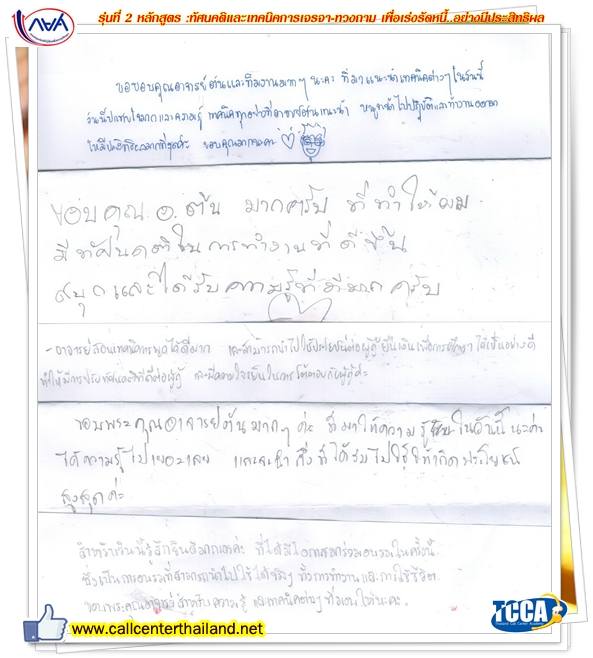 กยศ.
รุ่นที่ 2 หลักสูตร :ทัศนคติและเทคนิคการเจรจา-ทวงถาม เพื่อเร่งรัดหนี้..อย่างมีประสิทธิผล
ขอขอบคุณอาจารย์ต้นและทีมงานมากๆ นะคะ ที่มาแนะนำเทคนิคต่างๆ ในวันนี้
เทคนิคทุกอย่างที่อาจารย์ต้นแนะนำ หนูจะนำไปปฏิบัติและทำงานออกมา
ให้มีประสิทธิผลมากที่สุดค่ะ ขอบคุณมากนะคะ
ขอบคุณ อ. ต้น มากครับ ที่ทำให้ผม
มีทัศนคติในการทำงานที่ดีขึ้น
สนุกและได้รับความรู้ที่ดีมากครับ
- อาจารย์สอนเทคนิคการพูดได้ดีมาก และสามารถนำไปใช้ประโยชน์ต่อผู้กู้ยืมเงินเพื่อการศึกษา ได้เป็นอย่างดี
ทำให้มีการปรับทัศนคติที่ดีต่อผู้กู้ และมีความใจเย็นในการโต้ตอบกับผู้กู้ค่ะ
ขอบพระคุณอาจารย์ต้นมากๆ ค่ะ ที่มาให้ความรู้ในวันนี้ นะคะ
ได้ความรู้ไปเยอะเลย และจะนำสิ่งที่ได้รับไปใช้ให้เกิดประโยชน์
สูงสุดค่ะ
สำหรับวันนี้รู้สึกยินดีมากเลยค่ะ ที่ได้มีโอกาสมาร่วมอบรมในครั้งนี้
ซึ่งเป็นการอบรมที่สามารถนำไปใช้ได้จริงๆ ทั้งการทำงานและการใช้ชีวิต
ขอบพระคุณอาจารย์สำหรับความรู้ และเทคนิคต่างๆ ที่มอบให้นะคะ.
www.callcenterthailand.net
TCCA
Thailand Call Center Academy